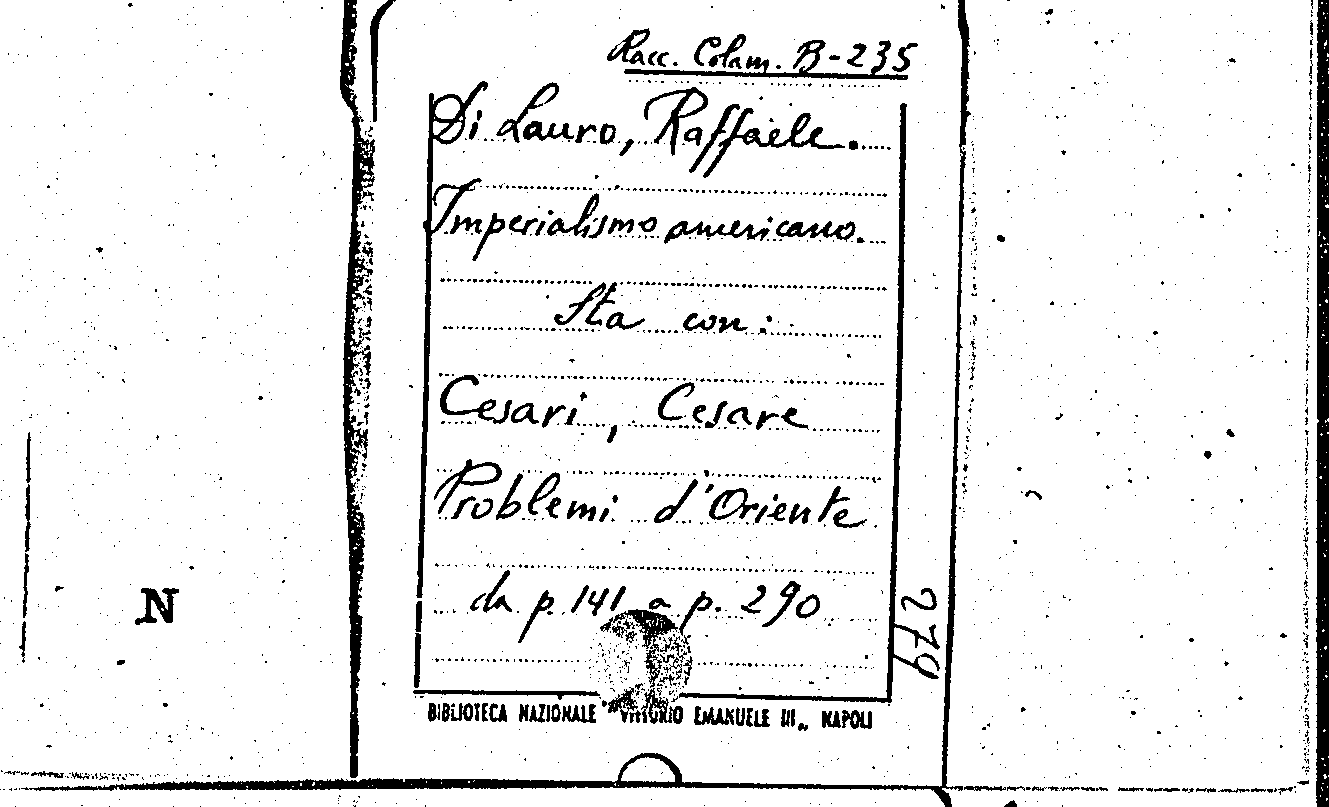 Racc. Colam. B-235
Di Lauro, Raffaele.
Imperialismo americano.
Sta con:
Cesari, Cesare
Problemi d'Oriente
da p. 141 a p. 290
279
N
BIBLIOTECA NAZIONALE "VITTORIO EMANUELE III„ NAPOLI